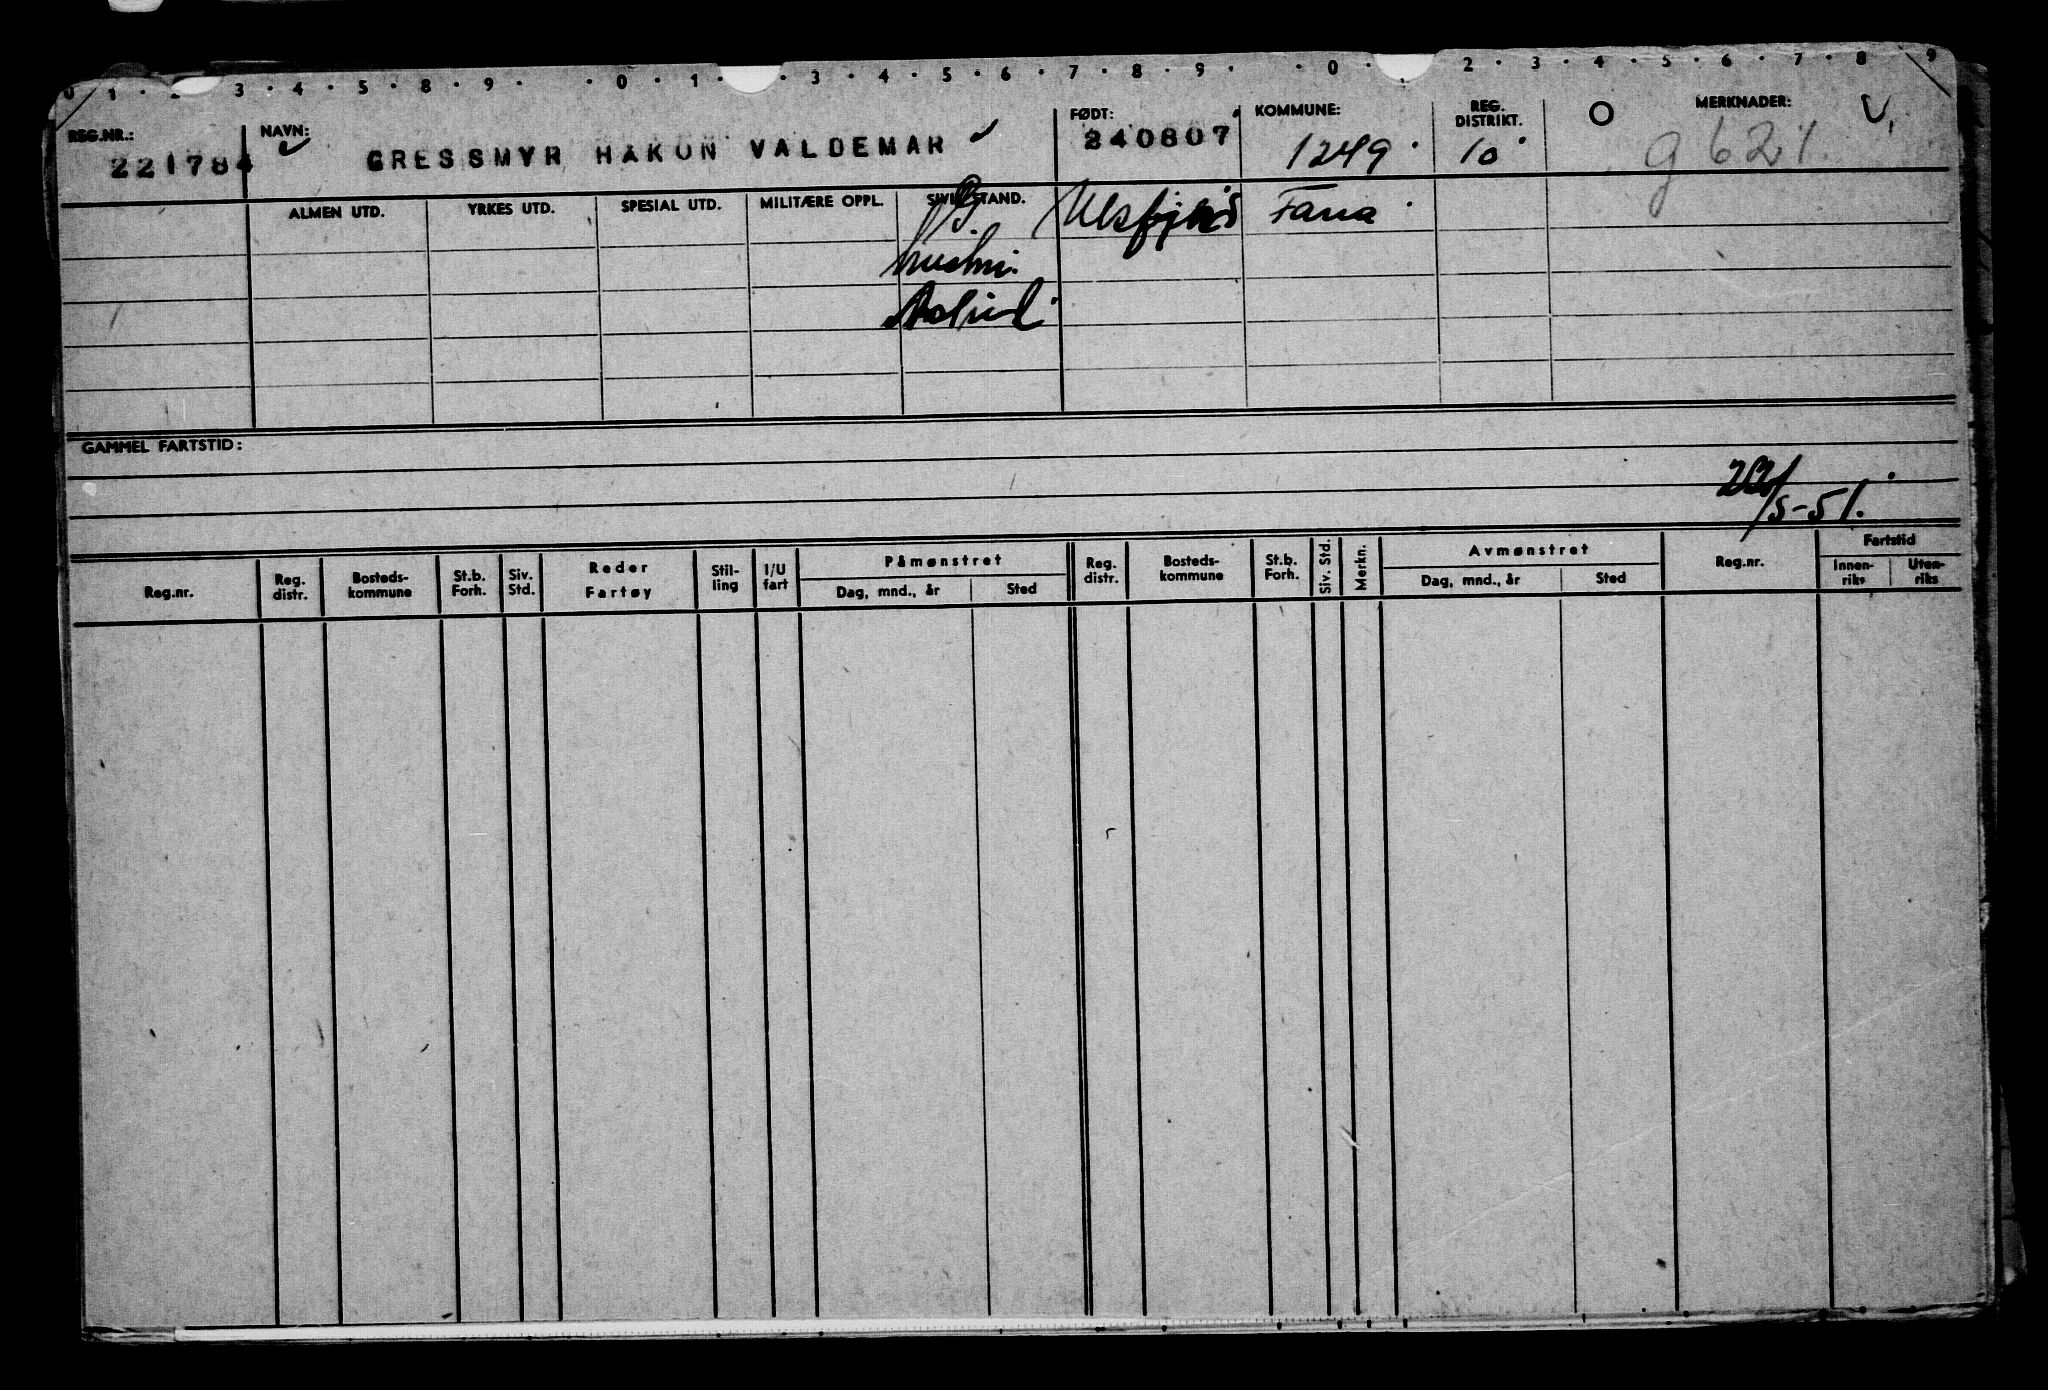 0 1 · 2 · 3 · 4 · 5 · 8 · 9 · · 0 · 1 · · 3 · 4 · 5 · 6 · 7 · 8 · 9 · · 0 · · 2 · 3 · 4 · 5 · 6 · 7 · 8 · 9
REG.NR.: NAVN: FØDT: KOMMUNE: REG. DISTRIKT. O MERKNADER:
221784 GRESSMYR HAKON VALDEMAR 240807 1249 10 g 621.
ALMEN UTD. YRKES UTD. SPESIAL UTD. MILITÆRE OPPL. SIVILSTAND. Ulsfjord Fana
G.
hustru.
Astrid
GAMMEL FARTSTID:
/5-51.
Reg.nr. Reg. distr. Bosteds-kommune St.b. Forh. Siv. Std. Reder Fartøy Stil-ling I/U fart Påmønstret Dag, mnd., år Sted Reg. distr. Bosteds-kommune St.b. Forh. Siv. Std. Merkn. Avmønstret Dag, mnd., år Sted Reg.nr. Fartstid Innen-riks Uten-riks